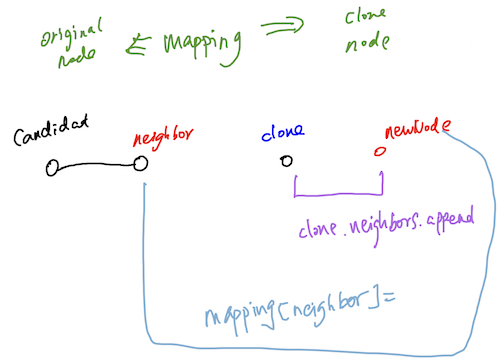 original node
⇐ mapping ⇒
clone node
Candidat
neighbor
clone
newNode
clone.neighbors.append
mapping[neighbor]=